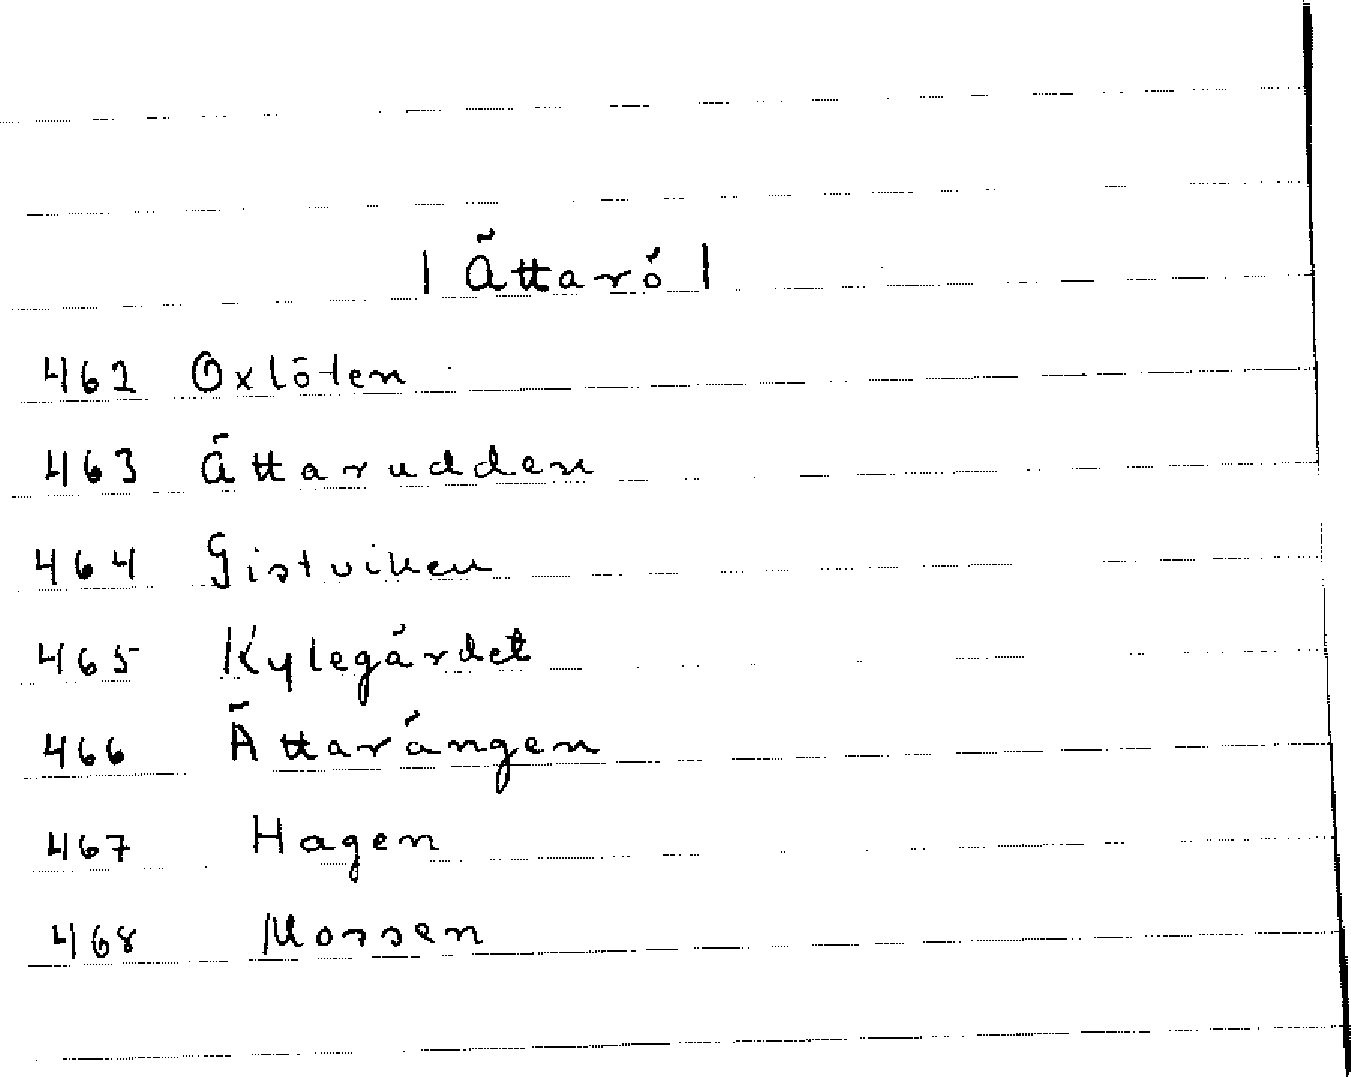 | Ättarö |
462 Oxlöten
463 Ättarudden
464 Gistviken
465 Kylegärdet
466 Ättarängen
467 Hagen
468 Mossen